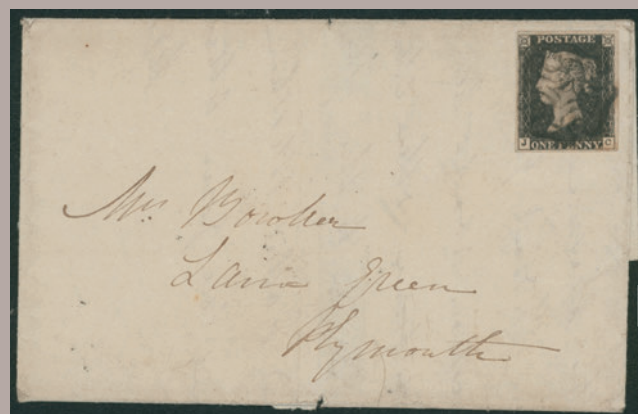 POSTAGE
J ONE PENNY C
Mrs Bowker
Laira Green
Plymouth